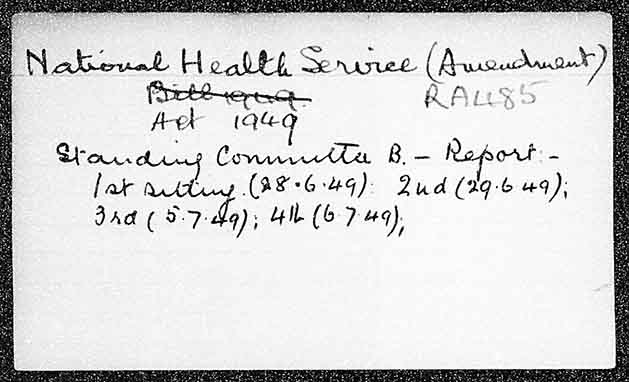 National Health Service (Amendment)
Bill 1949. RA485
Act 1949
Standing Committee B. – Report:-
1st sitting. (28.6.49): 2nd (29.6.49);
3rd (5.7.49); 4th (6.7.49);